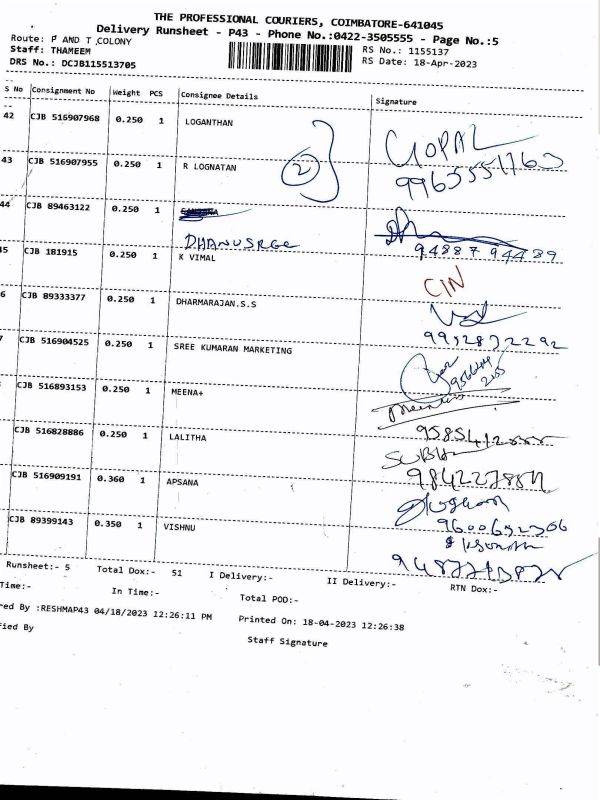 THE PROFESSIONAL COURIERS, COIMBATORE-641045
Delivery Runsheet - P43 - Phone No.:0422-3505555 - Page No.:5
Route: P AND T COLONY
Staff: THAMEEM
DRS No.: DCJB115513705
RS No.: 1155137
RS Date: 18-Apr-2023
S No Consignment No Weight PCS Consignee Details Signature
42 CJB 516907968 0.250 1 LOGANTHAN GOPAL
43 CJB 516907955 0.250 1 R LOGNATAN 2 9965551763
44 CJB 89463122 0.250 1
DHANUSRGE 9488794489
45 CJB 181915 0.250 1 K VIMAL CIN
6 CJB 89333377 0.250 1 DHARMARAJAN.S.S
9952872292
7 CJB 516904525 0.250 1 SREE KUMARAN MARKETING
CJB 516893153 0.250 1 MEENA+
CJB 516828886 0.250 1 LALITHA SUBHA
CJB 516909191 0.360 1 APSANA
CJB 89399143 0.350 1 VISHNU
Runsheet:- 5 Total Dox:- 51 I Delivery:- II Delivery:- RTN Dox:-
Time:- In Time:- Total POD:-
red By :RESHMAP43 04/18/2023 12:26:11 PM Printed On: 18-04-2023 12:26:38
fied By Staff Signature